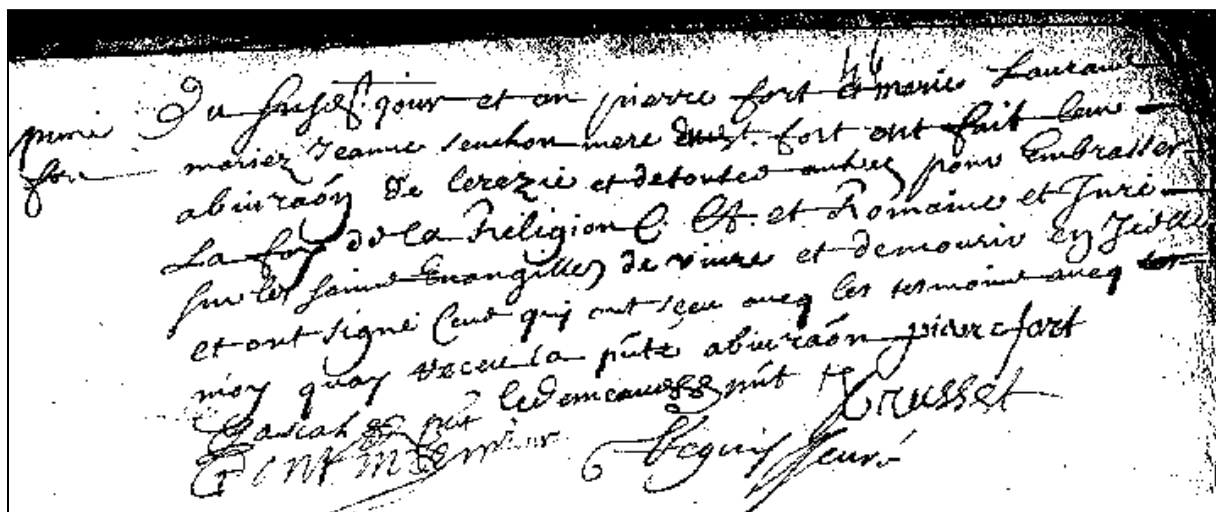 Du susd. jour et an pierre fort et marie Lauran
mariez Jeanne souchon mere dud. fort ont fait leur
abiuraôn de lerezie et detoutes autres pour Embrasser
La foy de la Religion C. A. et Romaine et Juré
sur les saints Evangilles de vivre et demourir En Icelle
et ont signé Ceux qui ont sçeu avecq les tesmoins avecq
moy quay receu la pñte abiuraôn pierre fort
pñt pñt Trusset
Curé